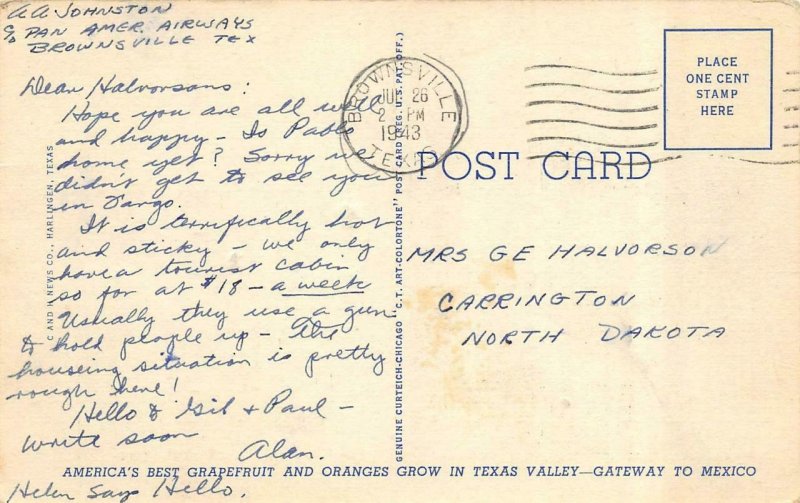 AA JOHNSTON
c/o PAN AMER. AIRWAYS
BROWNSVILLE TEX
Dear Halvorsons:
Hope you are all well
and happy - Is Pablo
home yet? Sorry we
didn't get to see you
in Fargo.
It is terrifically hot
and sticky - we only
have a tourist cabin
so far at $18 - a week
Usually they use a gun
to hold people up - the
houseing situation is pretty
rough here!
Hello to Gil + Paul -
write soon
Alan.
Helen says Hello.
C AND H NEWS CO., HARLINGEN, TEXAS
BROWNSVILLE
26
2 PM
1943
TEXAS
GENUINE CURTEICH-CHICAGO "C.T. ART-COLORTONE" POST CARD (REG. U.S. PAT. OFF.)
POST CARD
PLACE
ONE CENT
STAMP
HERE
MRS GE HALVORSON
CARRINGTON
NORTH DAKOTA
AMERICA'S BEST GRAPEFRUIT AND ORANGES GROW IN TEXAS VALLEY—GATEWAY TO MEXICO